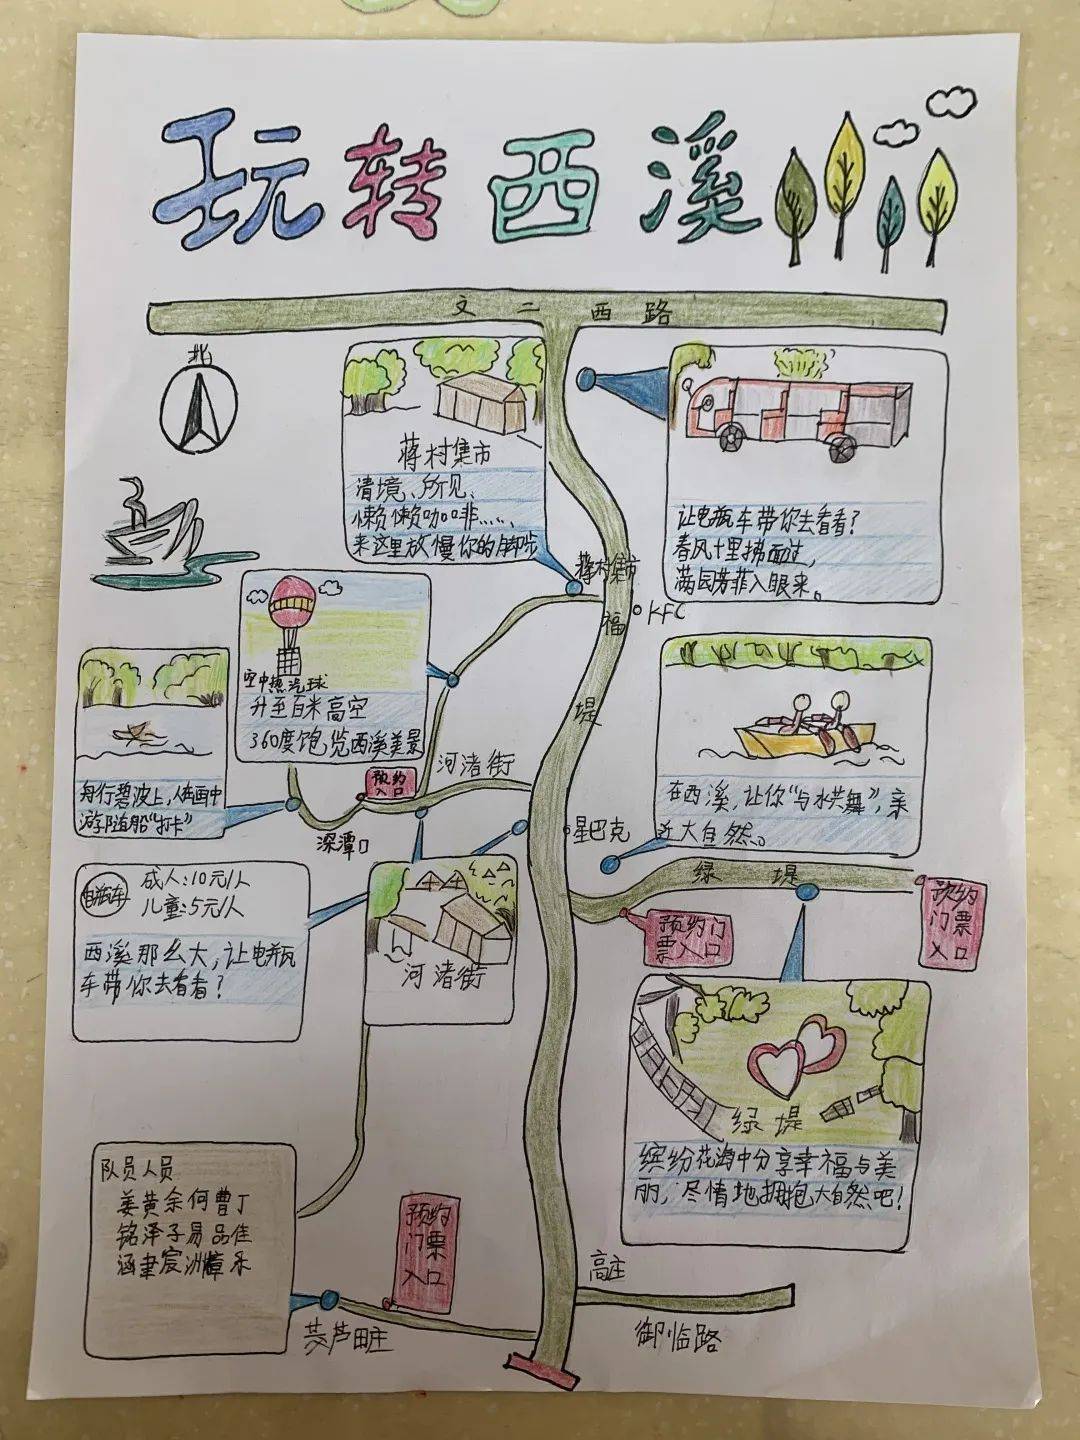 玩转西溪
文二西路
北
蒋村集市
清境、所见、
懒懒咖啡……,
来这里放慢你的脚步
让电瓶车带你去看看?
春风十里拂面过,
满园芳菲入眼来。
蒋村集市
福
KFC
堤
空中热汽球
升至百米高空
360度饱览西溪美景
河渚街
预约
入口
深潭口
舟行碧波上,人在画中
游,随船“打卡”
在西溪,让你“与水共舞”,亲
近大自然。
星巴克
绿堤
预约门
票入口
预约
门票
入口
电瓶车
成人:10元/人
儿童:5元/人
西溪那么大,让电瓶
车带你去看看?
河渚街
绿堤
缤纷花海中分享幸福与美
丽,尽情地拥抱大自然吧!
队员人员
姜黄余何曹丁
铭泽子易品佳
涵聿宸洲樟禾
预约
门票
入口
高庄
御临路
芡芦田庄